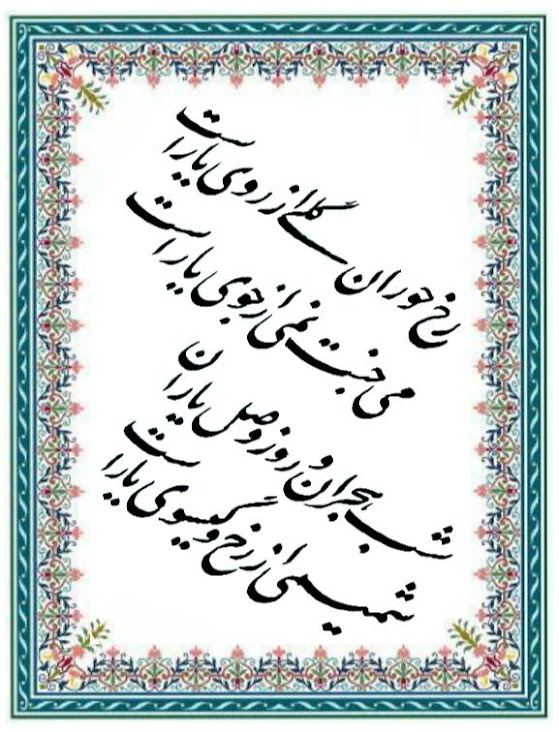 رخ حوران گلے از روی یار است
می جنت نمی از جوی یار است
شب ہجران و روز وصل یاران
شمیمی از رخ و گیسوی یار است